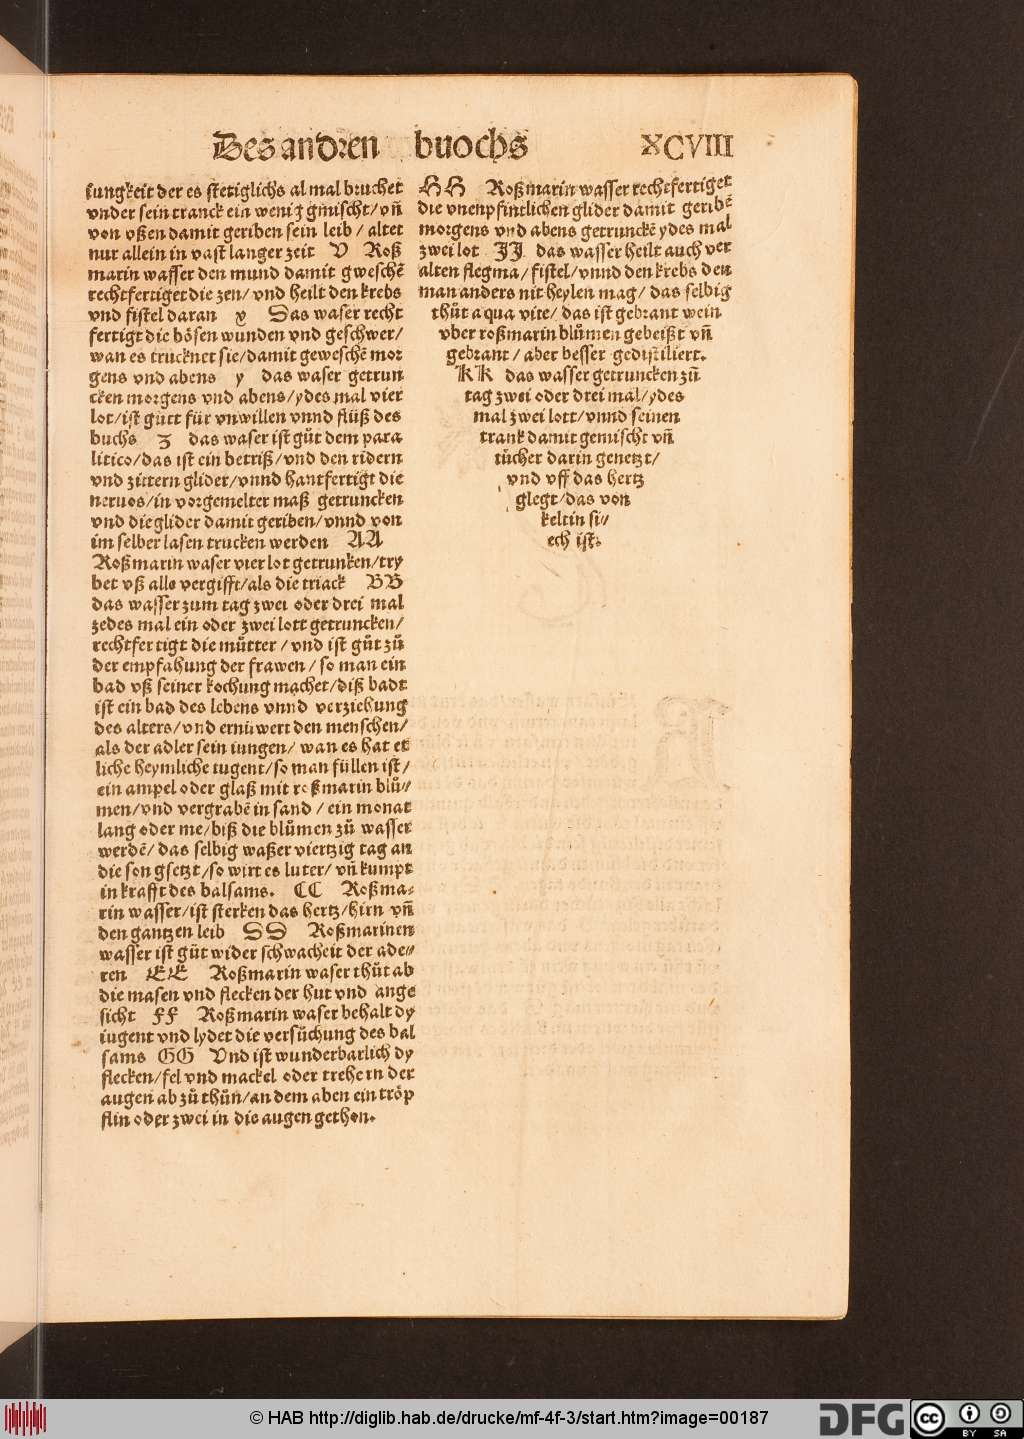 Des andren buochs XCVIII
iungkeit der es stetiglichs al mal bruchet
vnder sein tranck ein wenig gmischt/vñ
von vßen damit geriben sein leib / altet
nur allein in vast langer zeit V Roß
marin wasser den mund damit gweschē
rechtfertiget die zen/ vnd heilt den krebs
vnd fistel daran x Das waser recht
fertigt die bösen wunden vnd geschwer/
wan es trucknet sie/damit geweschē mor
gens vnd abens y das waser getrun
cken morgens vnd abens/ydes mal vier
lot/ist gůtt für vnwillen vnnd flüß des
buchs z das waser ist gůt dem para
litico/das ist ein betriß/vnd den ridern
vnd zittern glider/vnnd hantfertigt die
neruos/in vorgemelter maß getruncken
vnd die glider damit geriben/vnnd von
im selber lasen trucken werden AA
Roßmarin waser vier lot getrunken/try
bet vß alle vergifft/als die triack BB
das wasser zum tag zwei oder drei mal
zedes mal ein oder zwei lott getruncken/
rechtfertigt die můtter / vnd ist gůt zů
der empfahung der frawen / so man ein
bad vß seiner kochung machet/diß badt
ist ein bad des lebens vnnd verziehung
des alters/vnd ernüwert den menschen/
als der adler sein iungen/ wan es hat et
liche heymliche tugent/so man füllen ist/
ein ampel oder glaß mit roßmarin blů//
men/vnd vergrabē in sand / ein monat
lang oder me/biß die blůmen zů wasser
werdē/ das selbig waßer viertzig tag an
die son gsetzt/so wirt es luter/ vñ kumpt
in krafft des balsams. CC Roßma-
rin wasser/ist sterken das hertz/hirn vñ
den gantzen leib DD Roßmarinen
wasser ist gůt wider schwacheit der ade//
ren EE Roßmarin waser thůt ab
die masen vnd flecken der hut vnd ange
sicht FF Roßmarin waser behalt dy
iugent vnd lydet die versůchung des bal
sams GG Vnd ist wunderbarlich dy
flecken/fel vnd mackel oder trehern der
augen ab zů thůn/an dem aben ein tröp
flin oder zwei in die augen gethon.
HH Roßmarin wasser rechtfertiget
die vnenpfintlichen glider damit geribē
morgens vnd abens getrunckē ydes mal
zwei lot JJ das wasser heilt auch ver
alten flegma/fistel/vnnd den krebs den
man anders nit heylen mag/ das selbig
thůt aqua vite/ das ist gebrant wein
vber roßmarin blůmen gebeißt vñ
gebrant / aber besser gedistiliert.
KK das wasser getruncken zů
tag zwei oder drei mal/ydes
mal zwei lott/vnnd seinen
trank damit gemischt vñ
tücher darin genetzt/
vnd vff das hertz
glegt/das von
keltin si//
ech ist.
© HAB http://diglib.hab.de/drucke/mf-4f-3/start.htm?image=00187
DFG
cc BY SA